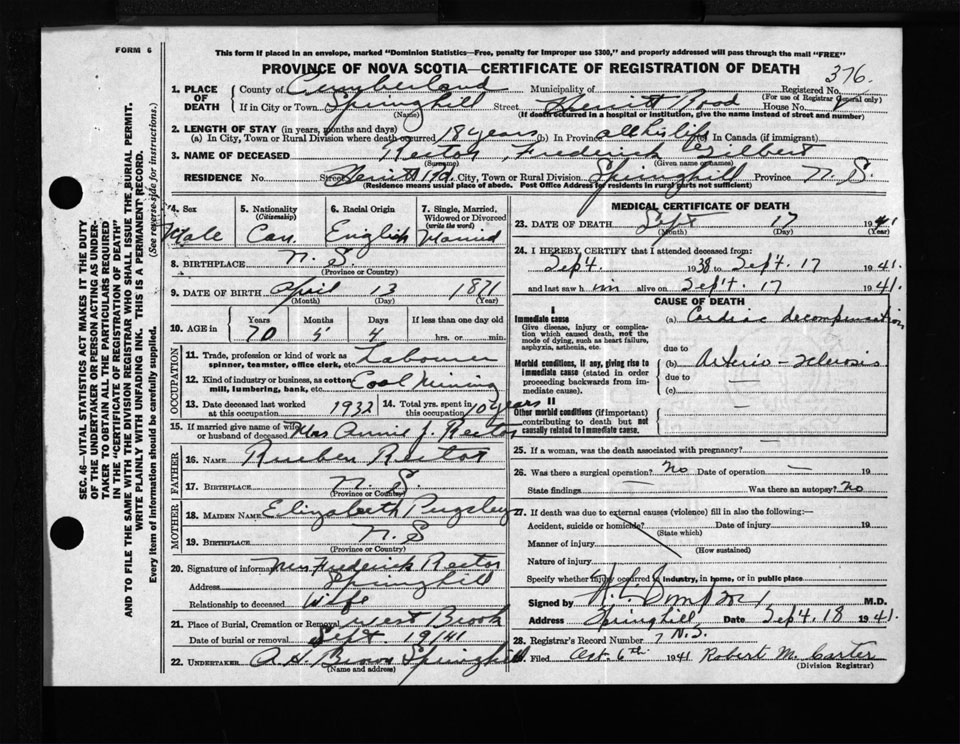 FORM 6
This form if placed in an envelope, marked "Dominion Statistics—Free, penalty for improper use $300," and properly addressed will pass through the mail "FREE"
PROVINCE OF NOVA SCOTIA—CERTIFICATE OF REGISTRATION OF DEATH
376.
1. PLACE OF DEATH
County of Cumberland Municipality of Registered No.
(For use of Registrar General only)
If in City or Town Springhill Street Herritt Road House No.
(Name) (If death occurred in a hospital or institution, give the name instead of street and number)
2. LENGTH OF STAY (in years, months and days)
(a) In City, Town or Rural Division where death occurred 18 years (b) In Province all his life (c) In Canada (if immigrant)
3. NAME OF DECEASED Rector, Frederick Gilbert
(Surname) (Given name or names)
RESIDENCE No. Street Herritt Rd. City, Town or Rural Division Springhill Province N.S.
(Residence means usual place of abode. Post Office Address for residents in rural parts not sufficient)
4. Sex Male
5. Nationality (Citizenship) Can.
6. Racial Origin English
7. Single, Married, Widowed or Divorced (write the word) Married
8. BIRTHPLACE N.S.
(Province or Country)
9. DATE OF BIRTH April 13 1871
(Month) (Day) (Year)
10. AGE in Years Months Days If less than one day old
70 5 4 hrs. or min.
OCCUPATION
11. Trade, profession or kind of work as spinner, teamster, office clerk, etc. Labourer
12. Kind of industry or business, as cotton mill, lumbering, bank, etc. Coal Mining
13. Date deceased last worked at this occupation 1932
14. Total yrs. spent in this occupation 10 years
15. If married give name of wife or husband of deceased Mrs Annie J. Rector
FATHER
16. NAME Reuben Rector
17. BIRTHPLACE N.S.
(Province or Country)
MOTHER
18. MAIDEN NAME Elizabeth Pugsley
19. BIRTHPLACE N.S
(Province or Country)
20. Signature of informant Mrs Frederick Rector
Address Springhill
Relationship to deceased Wife
21. Place of Burial, Cremation or Removal West Brook
Date of burial or removal Sept. 19/41
22. UNDERTAKER A. H. Brown Springhill
(Name and address)
MEDICAL CERTIFICATE OF DEATH
23. DATE OF DEATH Sept 17 1941
(Month) (Day) (Year)
24. I HEREBY CERTIFY that I attended deceased from:
Sept. 1938 to Sept. 17 1941.
and last saw him alive on Sept. 17 1941.
CAUSE OF DEATH
I
Immediate cause
Give disease, injury or complication which caused death, not the mode of dying, such as heart failure, asphyxia, asthenia, etc.
(a) Cardiac decompensation
due to
Morbid conditions, if any, giving rise to immediate cause (stated in order proceeding backwards from immediate cause).
(b) Arterio-sclerosis
due to —
(c)
II
Other morbid conditions (if important) contributing to death but not causally related to immediate cause.
—
25. If a woman, was the death associated with pregnancy?
26. Was there a surgical operation? No Date of operation — 19
State findings — Was there an autopsy? No
27. If death was due to external causes (violence) fill in also the following:—
Accident, suicide or homicide? Date of injury 19
(State which)
Manner of injury
(How sustained)
Nature of injury
Specify whether injury occurred in industry, in home, or in public place
Signed by M.D.
Address Springhill, Date Sept. 18 1941.
N.S.
28. Registrar's Record Number 7
29. Filed Oct. 6th 1941 Robert M. Carter
(Division Registrar)
SEC. 46—VITAL STATISTICS ACT MAKES IT THE DUTY
OF THE UNDERTAKER OR PERSON ACTING AS UNDERTAKER TO OBTAIN ALL THE PARTICULARS REQUIRED
IN THE "CERTIFICATE OF REGISTRATION OF DEATH"
AND TO FILE THE SAME WITH THE DIVISION REGISTRAR WHO SHALL ISSUE THE BURIAL PERMIT.
WRITE PLAINLY WITH UNFADING INK. THIS IS A PERMANENT RECORD.
Every item of information should be carefully supplied. (See reverse side for instructions.)